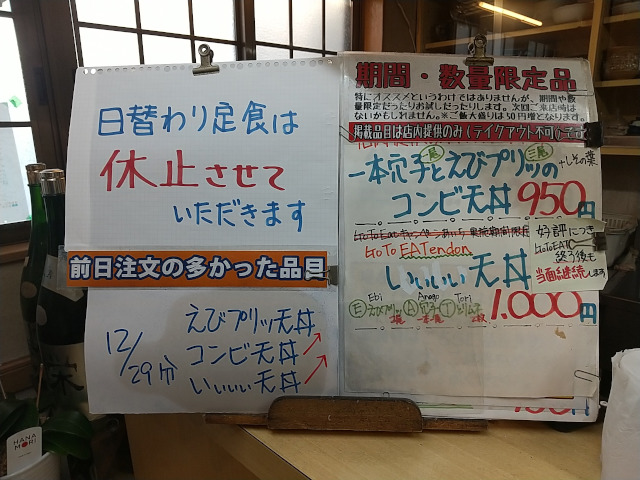 日替わり定食は
休止させて
いただきます
前日注文の多かった品目
12/29分
えびプリッツ天丼
コンビ天丼
いぃぃぃ天丼
期間・数量限定品
特にオススメというわけではありませんが、期間や数
量限定だったりお試しだったりします。次回ご来店時は
ないかもしれません。※ご飯大盛りは50円増となります。
掲載品目は店内提供のみ(テイクアウト不可)です
一本穴子とえびプリッツの
一尾
三尾
+しその葉
コンビ天丼 950円
GoToEatキャンペーンあいち
GoTo EATendon
いぃぃぃ天丼
好評につき
GoToEAT
終了後も
当面継続します
Ebi Anago Tori
E えびプリッツ A 穴子 T とりムネ
1,000円
HANA
MORI